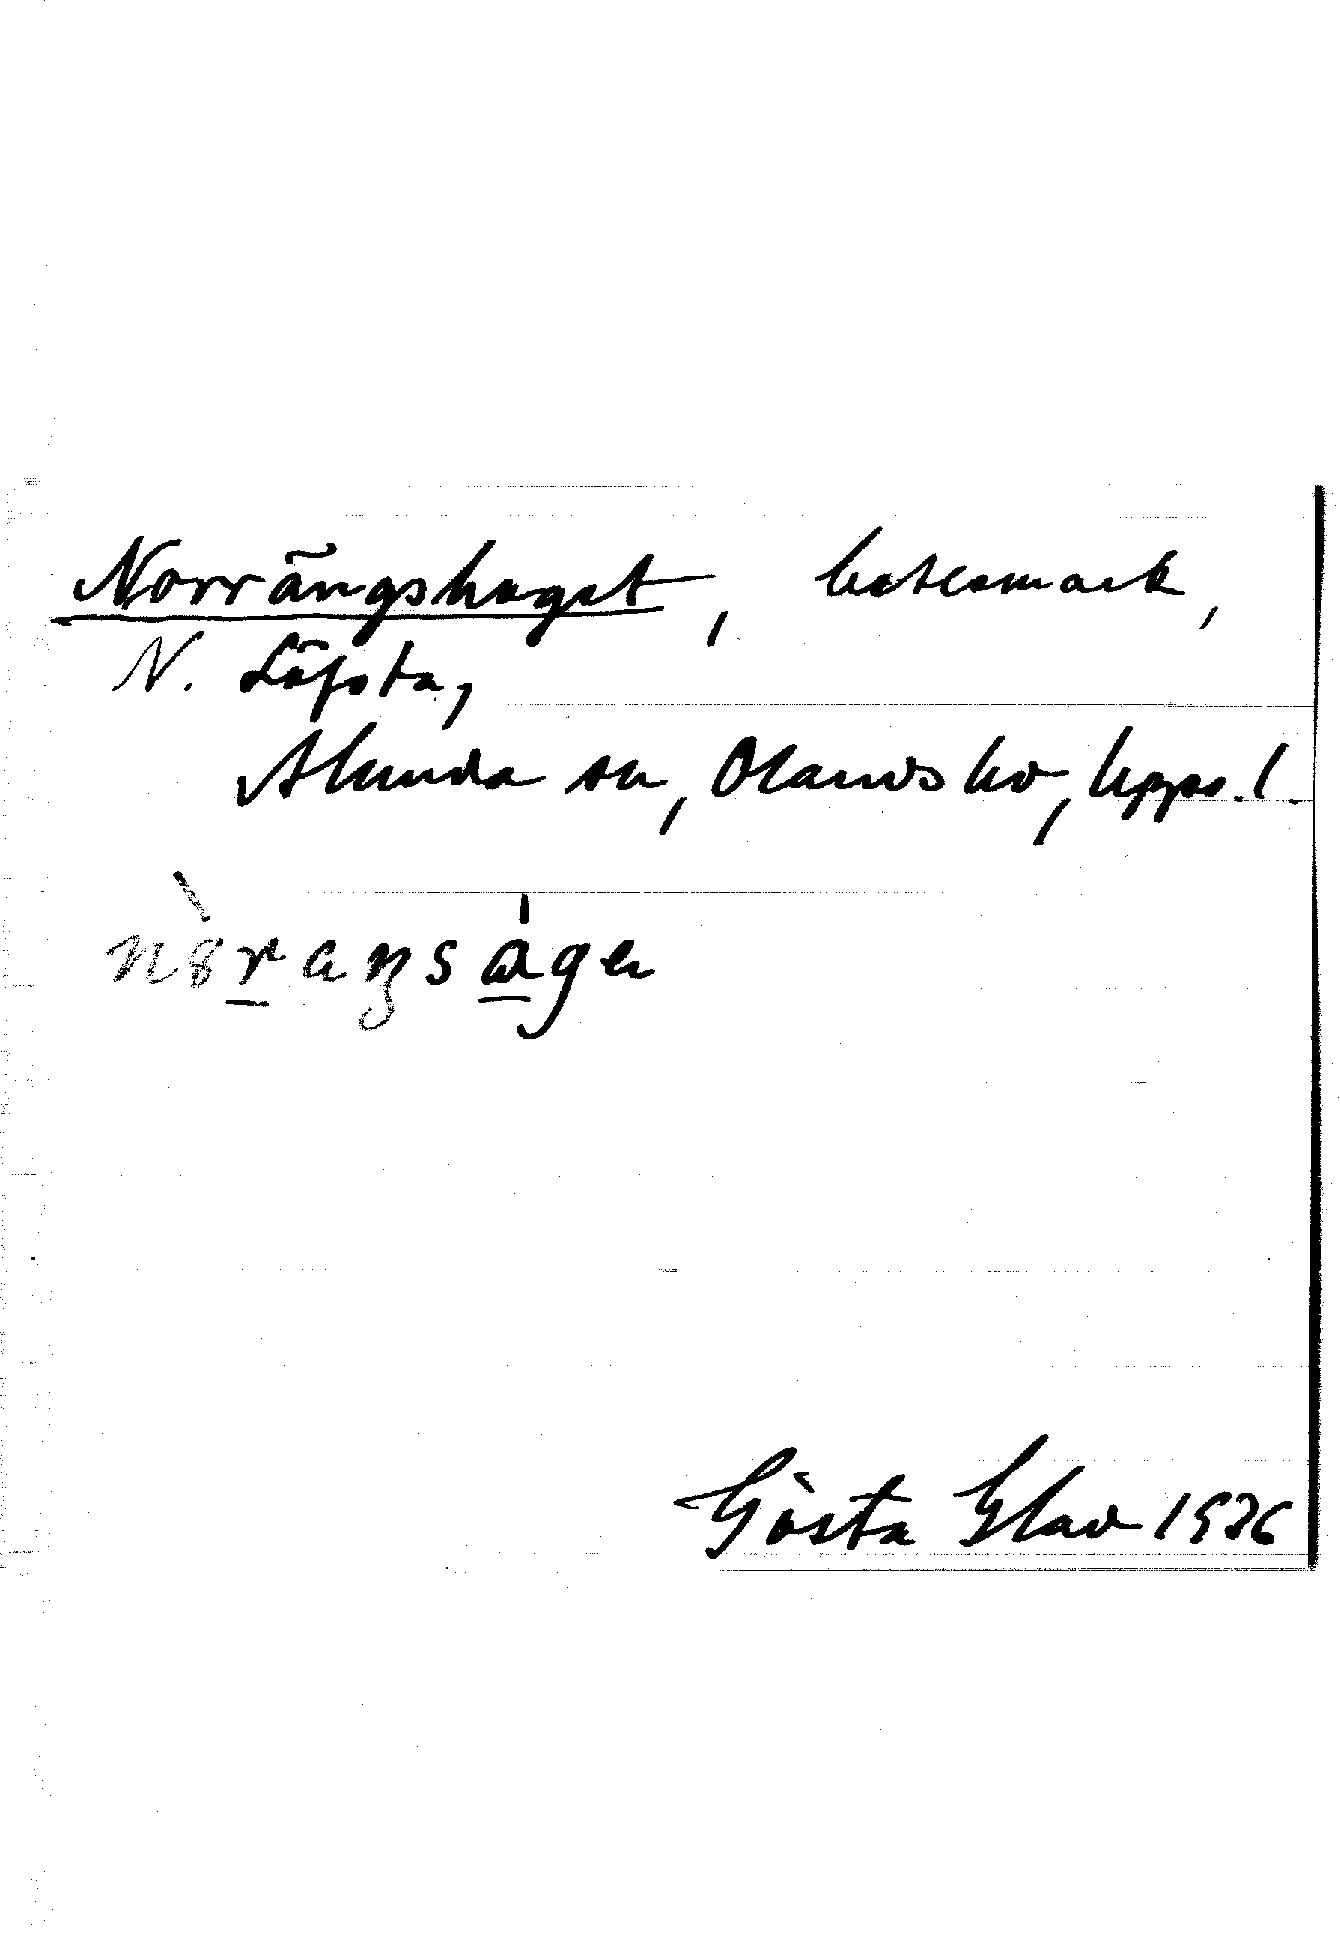 Norrängshaget, betesmark,
N. Löfsta,
Alunda sn, Olands hd, Upps. l.
Gösta Glad 1936